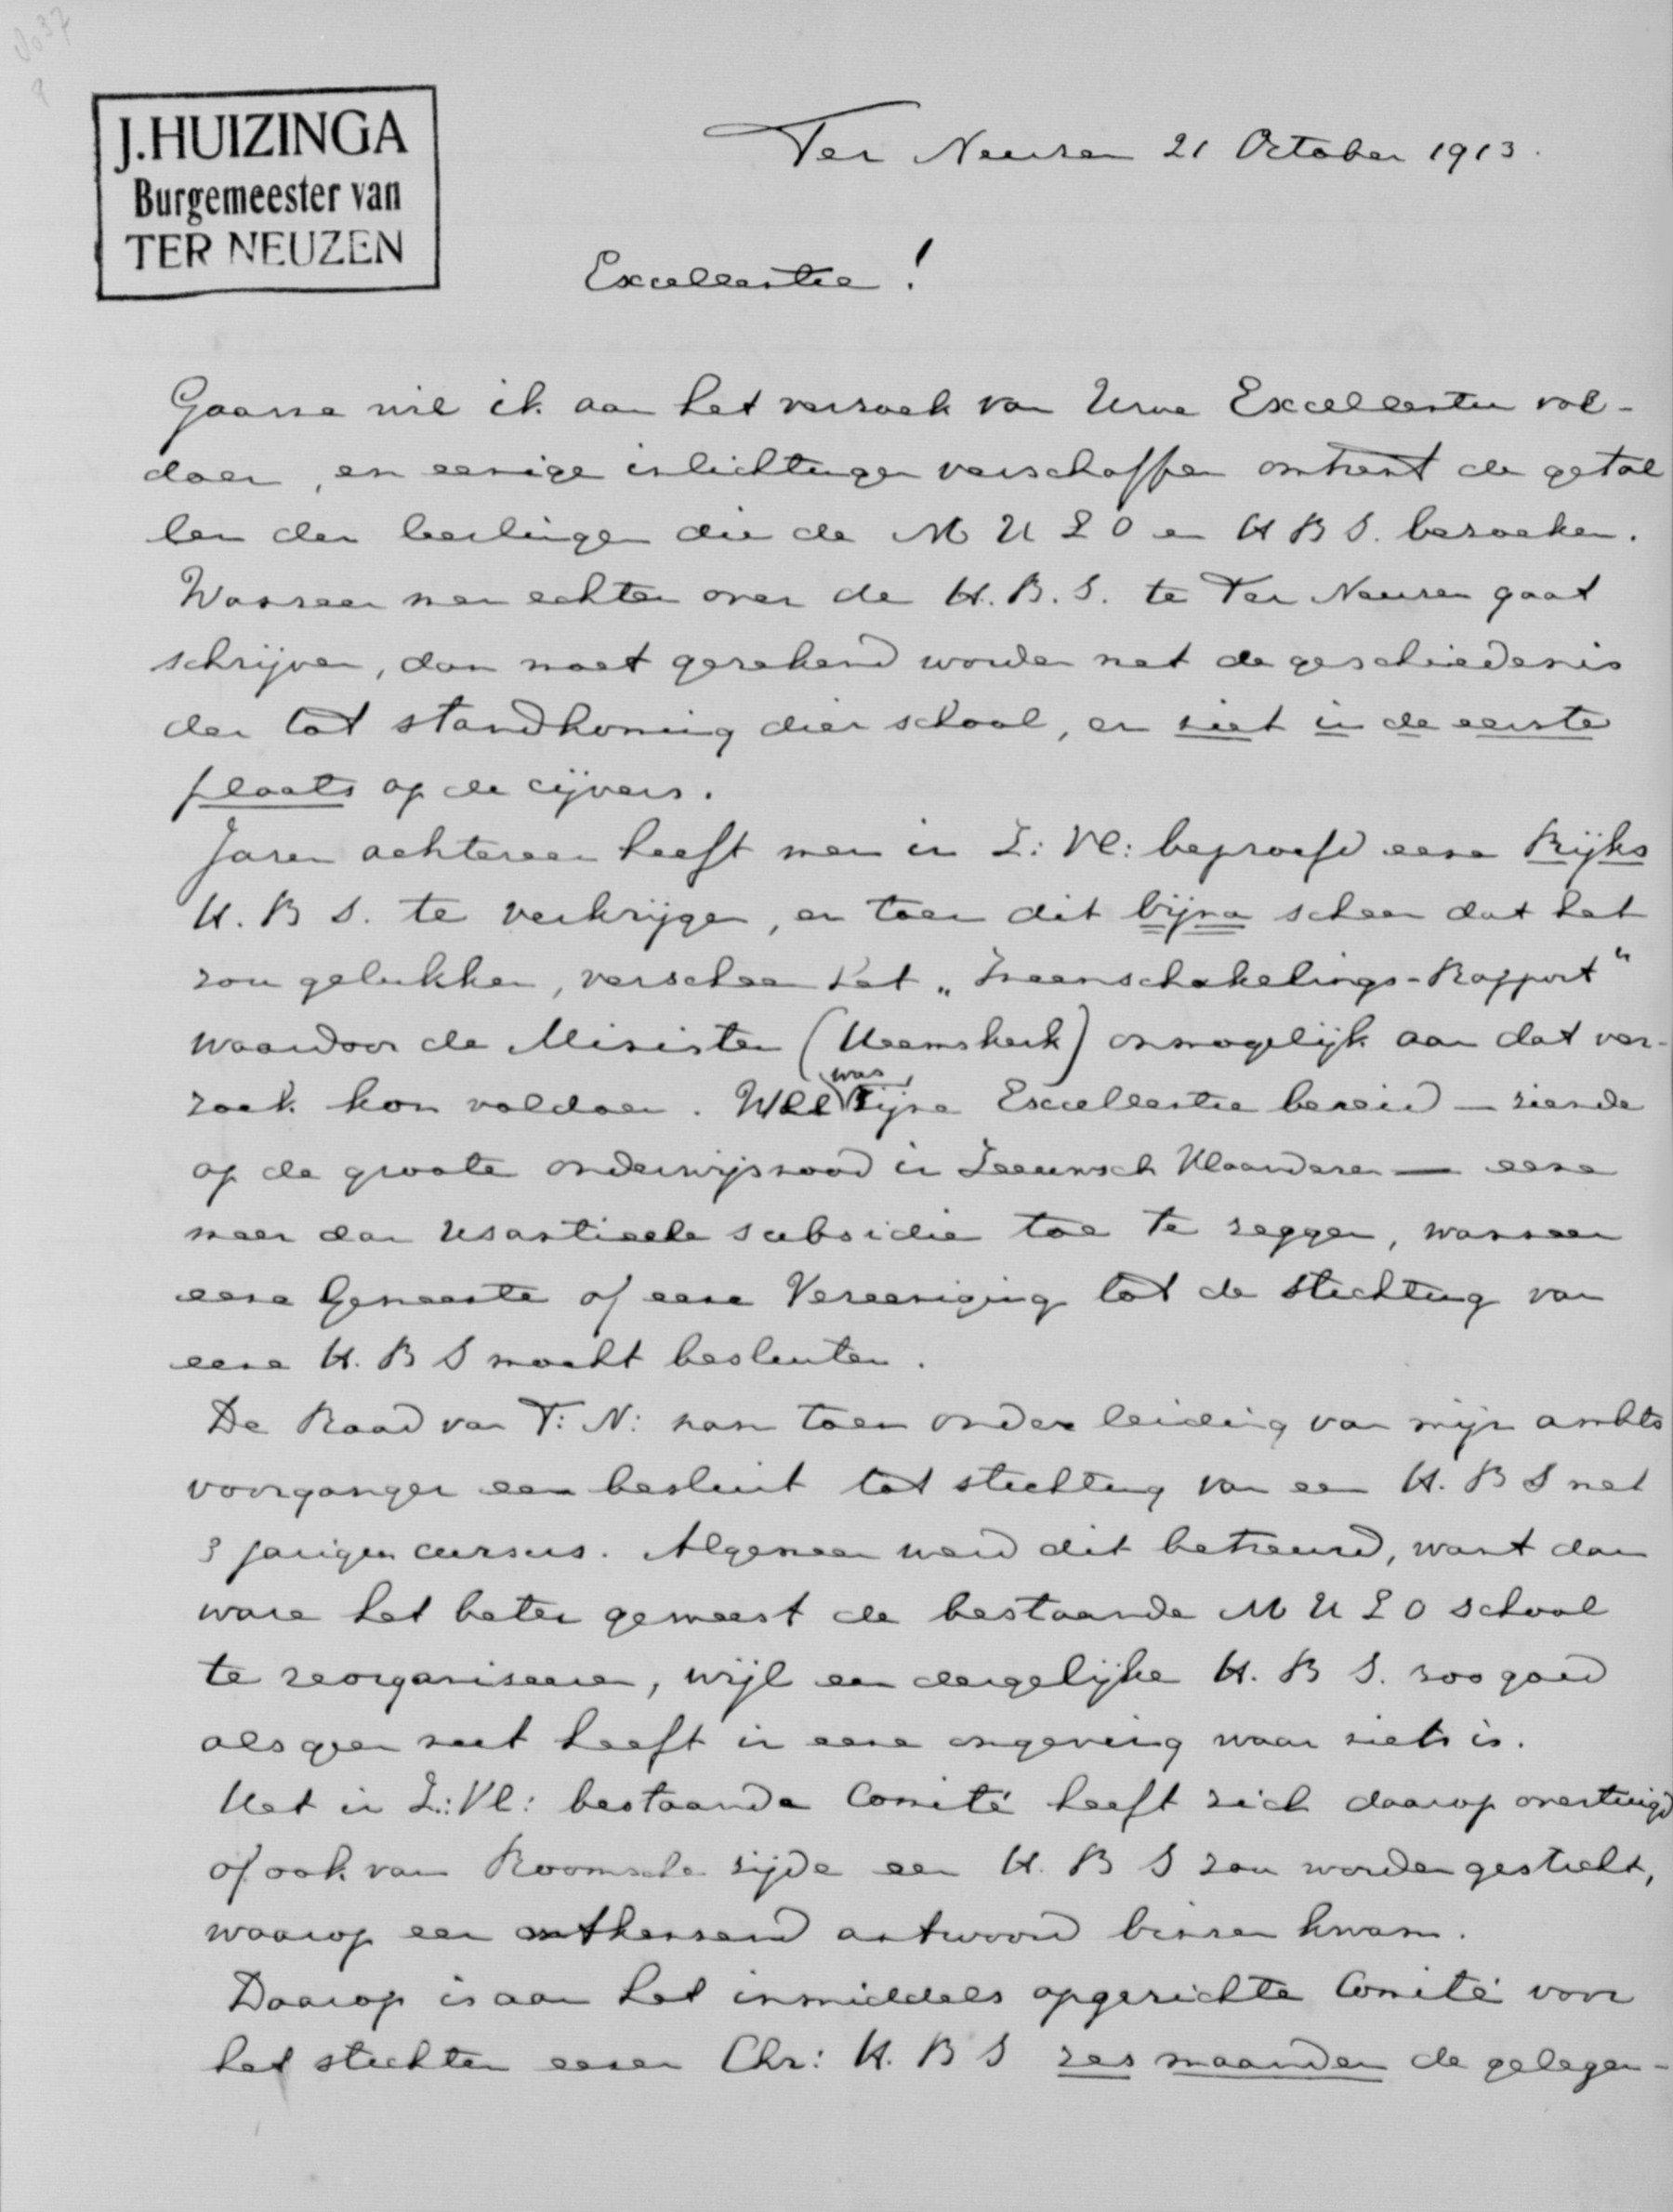 J. HUIZINGA
Burgemeester van
TER NEUZEN
Ter Neuzen 21 October 1913.
Excellentie!
Gaarne wil ik aan het verzoek van Uwe Excellentie vol-
doen, en eenige inlichtingen verschaffen omtrent de getal
len der leerlingen die de M U L O en H B S. bezoeken.
Wanneer men echter over de H. B. S. te Ter Neuzen gaat
schrijven, dan moet gerekend worden met de geschiedenis
der tot standkoming dier school, en niet in de eerste
plaats op de cijvers.
Jaren achtereen heeft men in Z: Vl: beproefd eene Rijks
H. B S. te verkrijgen, en toen dit bijna scheen dat het
zou gelukken, verscheen het „Ineenschakelings-Rapport"
waardoor de Minister (Heemskerk) onmogelijk aan dat ver-
zoek kon voldoen. Wel was Zijne Excellentie bereid — ziende
op de groote onderwijsnood in Zeeuwsch Vlaanderen — eene
meer dan usantieele subsidie toe te zeggen, wanneer
eene Gemeente of eene Vereeniging tot de stichting van
eene H. B S mocht besluiten.
De Raad van T: N: nam toen onder leiding van mijn ambts
voorganger een besluit tot stichting van een H. B S met
3 jarigen cursus. Algemeen werd dit betreurd, want dan
ware het beter geweest de bestaande M U L O school
te reorganiseeren, wijl een dergelijke H. B S. zoo goed
als geen nut heeft in eene omgeving waar niets is.
Het in Z.: Vl: bestaande Comité heeft zich daarop overtuigd
of ook van Roomsche zijde een H. B S zou worden gesticht,
waarop een ontkennend antwoord binnen kwam.
Daarop is aan het inmiddels opgerichte Comité voor
het stichten eener Chr: H. B S zes maanden de gelegen-